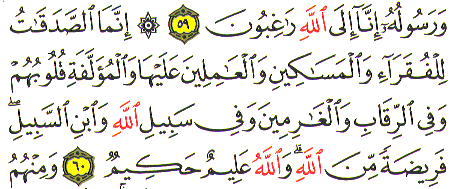 وَرَسُولُهُۥٓ إِنَّآ إِلَى ٱللَّهِ رَٰغِبُونَ ٥٩ ۞ إِنَّمَا ٱلصَّدَقَٰتُ
لِلْفُقَرَآءِ وَٱلْمَسَٰكِينِ وَٱلْعَٰمِلِينَ عَلَيْهَا وَٱلْمُؤَلَّفَةِ قُلُوبُهُمْ
وَفِى ٱلرِّقَابِ وَٱلْغَٰرِمِينَ وَفِى سَبِيلِ ٱللَّهِ وَٱبْنِ ٱلسَّبِيلِ ۖ
فَرِيضَةً مِّنَ ٱللَّهِ ۗ وَٱللَّهُ عَلِيمٌ حَكِيمٌ ٦٠ وَمِنْهُمُ